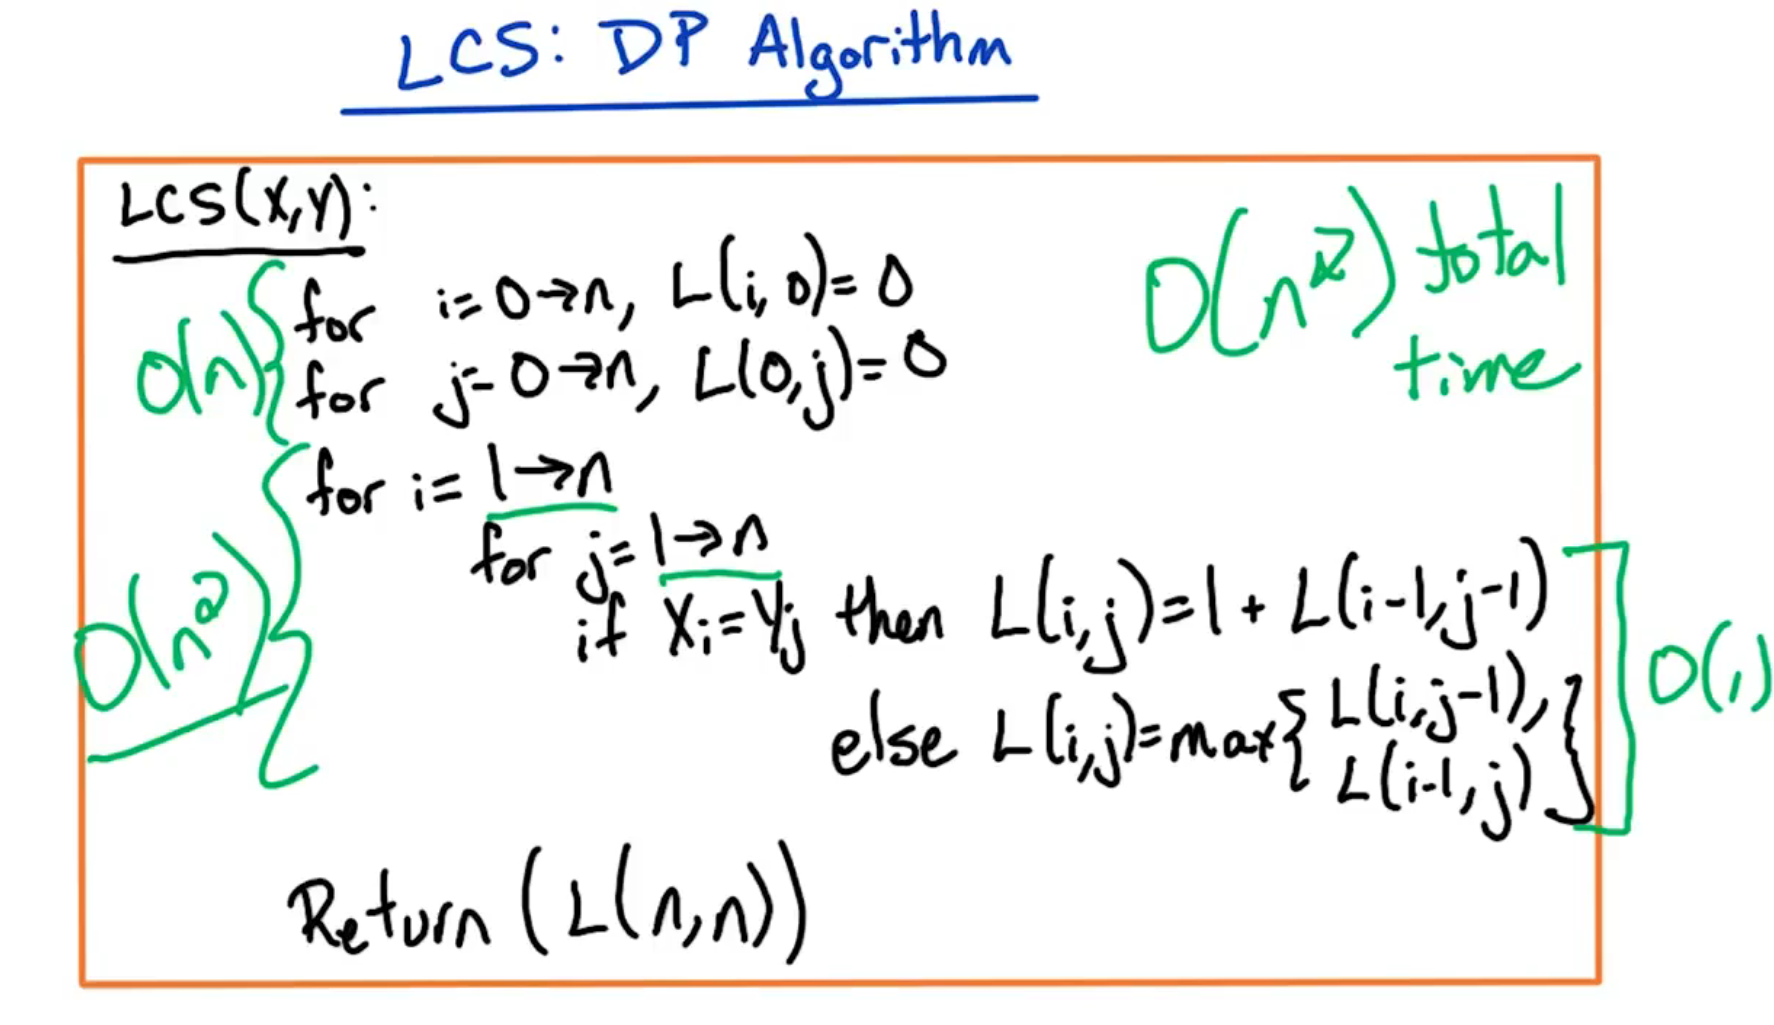 LCS: DP Algorithm
LCS(X,Y):
O(n²) total
time
for i=0→n, L(i,0)=0
O(n)
for j=0→n, L(0,j)=0
for i=1→n
for j=1→n
O(n²)
if Xi=Yj then L(i,j)=1+L(i-1,j-1)
O(1)
else L(i,j)=max{L(i,j-1),
L(i-1,j)}
Return (L(n,n))